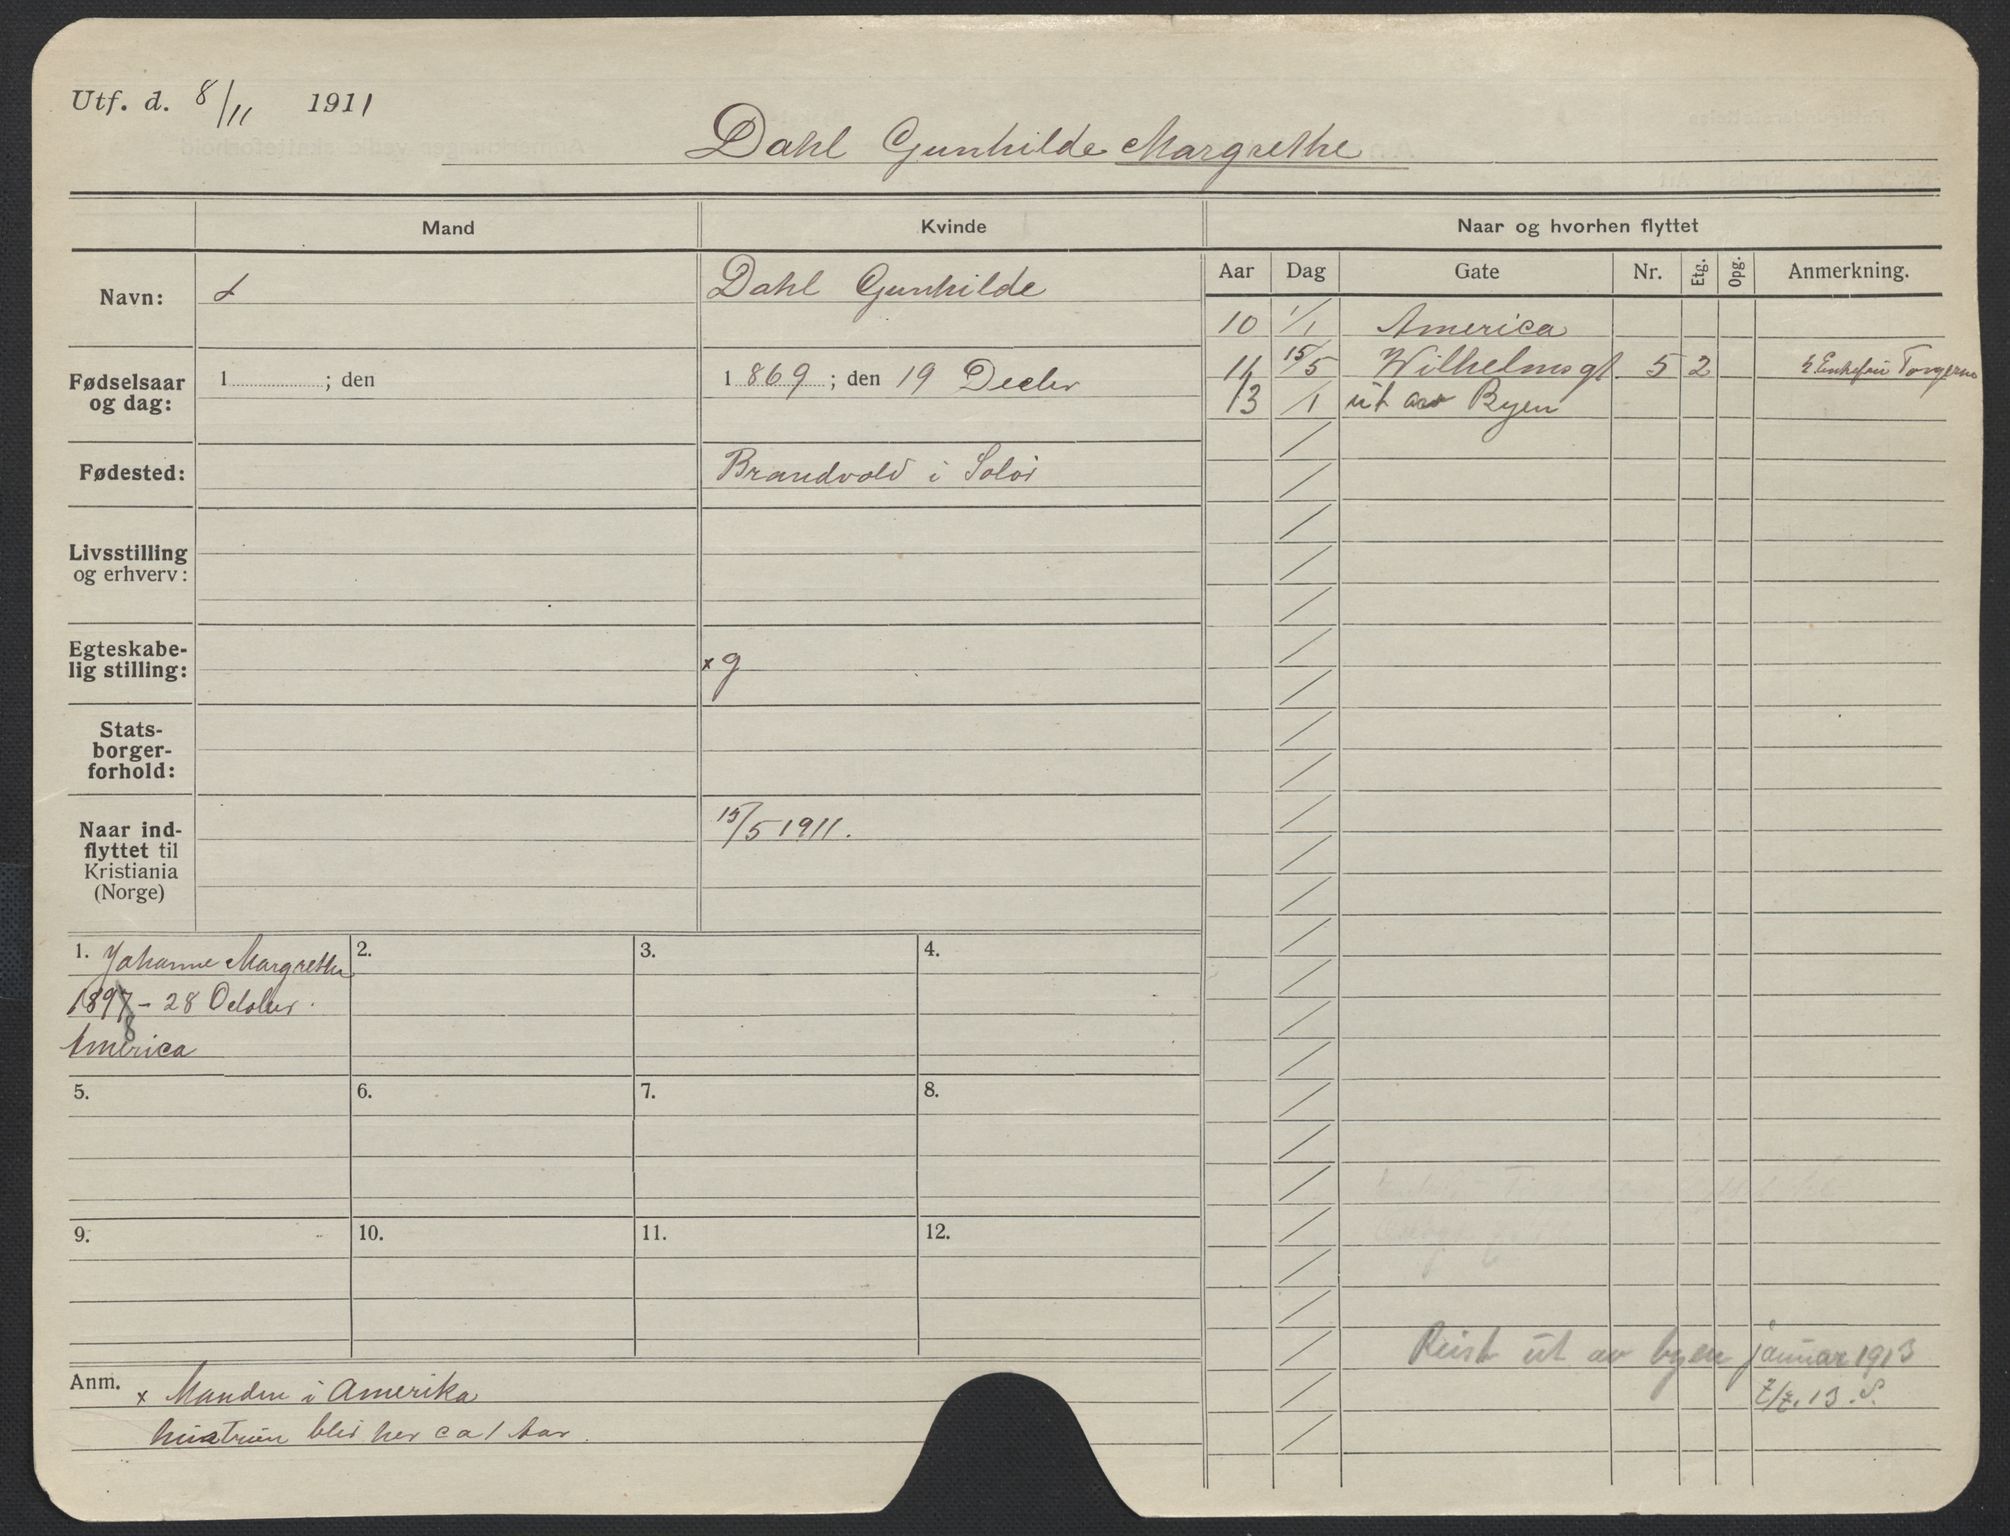 Utf. d. 8/11 1911
Dahl Gunhilde Margrethe
Mand
Kvinde
Naar og hvorhen flyttet
Navn:
Dahl Gunhilde
Fødselsaar og dag:
1 ; den
1869 ; den 19 Decbr
Fødested:
Brandvold i Solør
Livsstilling og erhverv:
Egteskabelig stilling:
x g
Statsborgerforhold:
Naar indflyttet til Kristiania (Norge)
15/5 1911.
1. Johanne Margrethe
1897 - 28 October.
8
America
2.
3.
4.
5.
6.
7.
8.
9.
10.
11.
12.
Anm. x Manden i Amerika
hustruen blir her ca 1 Aar.
Aar Dag Gate Nr. Etg. Opg. Anmerkning.
10 1/1 America
11 15/5 Wilhelmsgt. 5 2
13 /1 ut av Byen
Reist ut av byen januar 1913